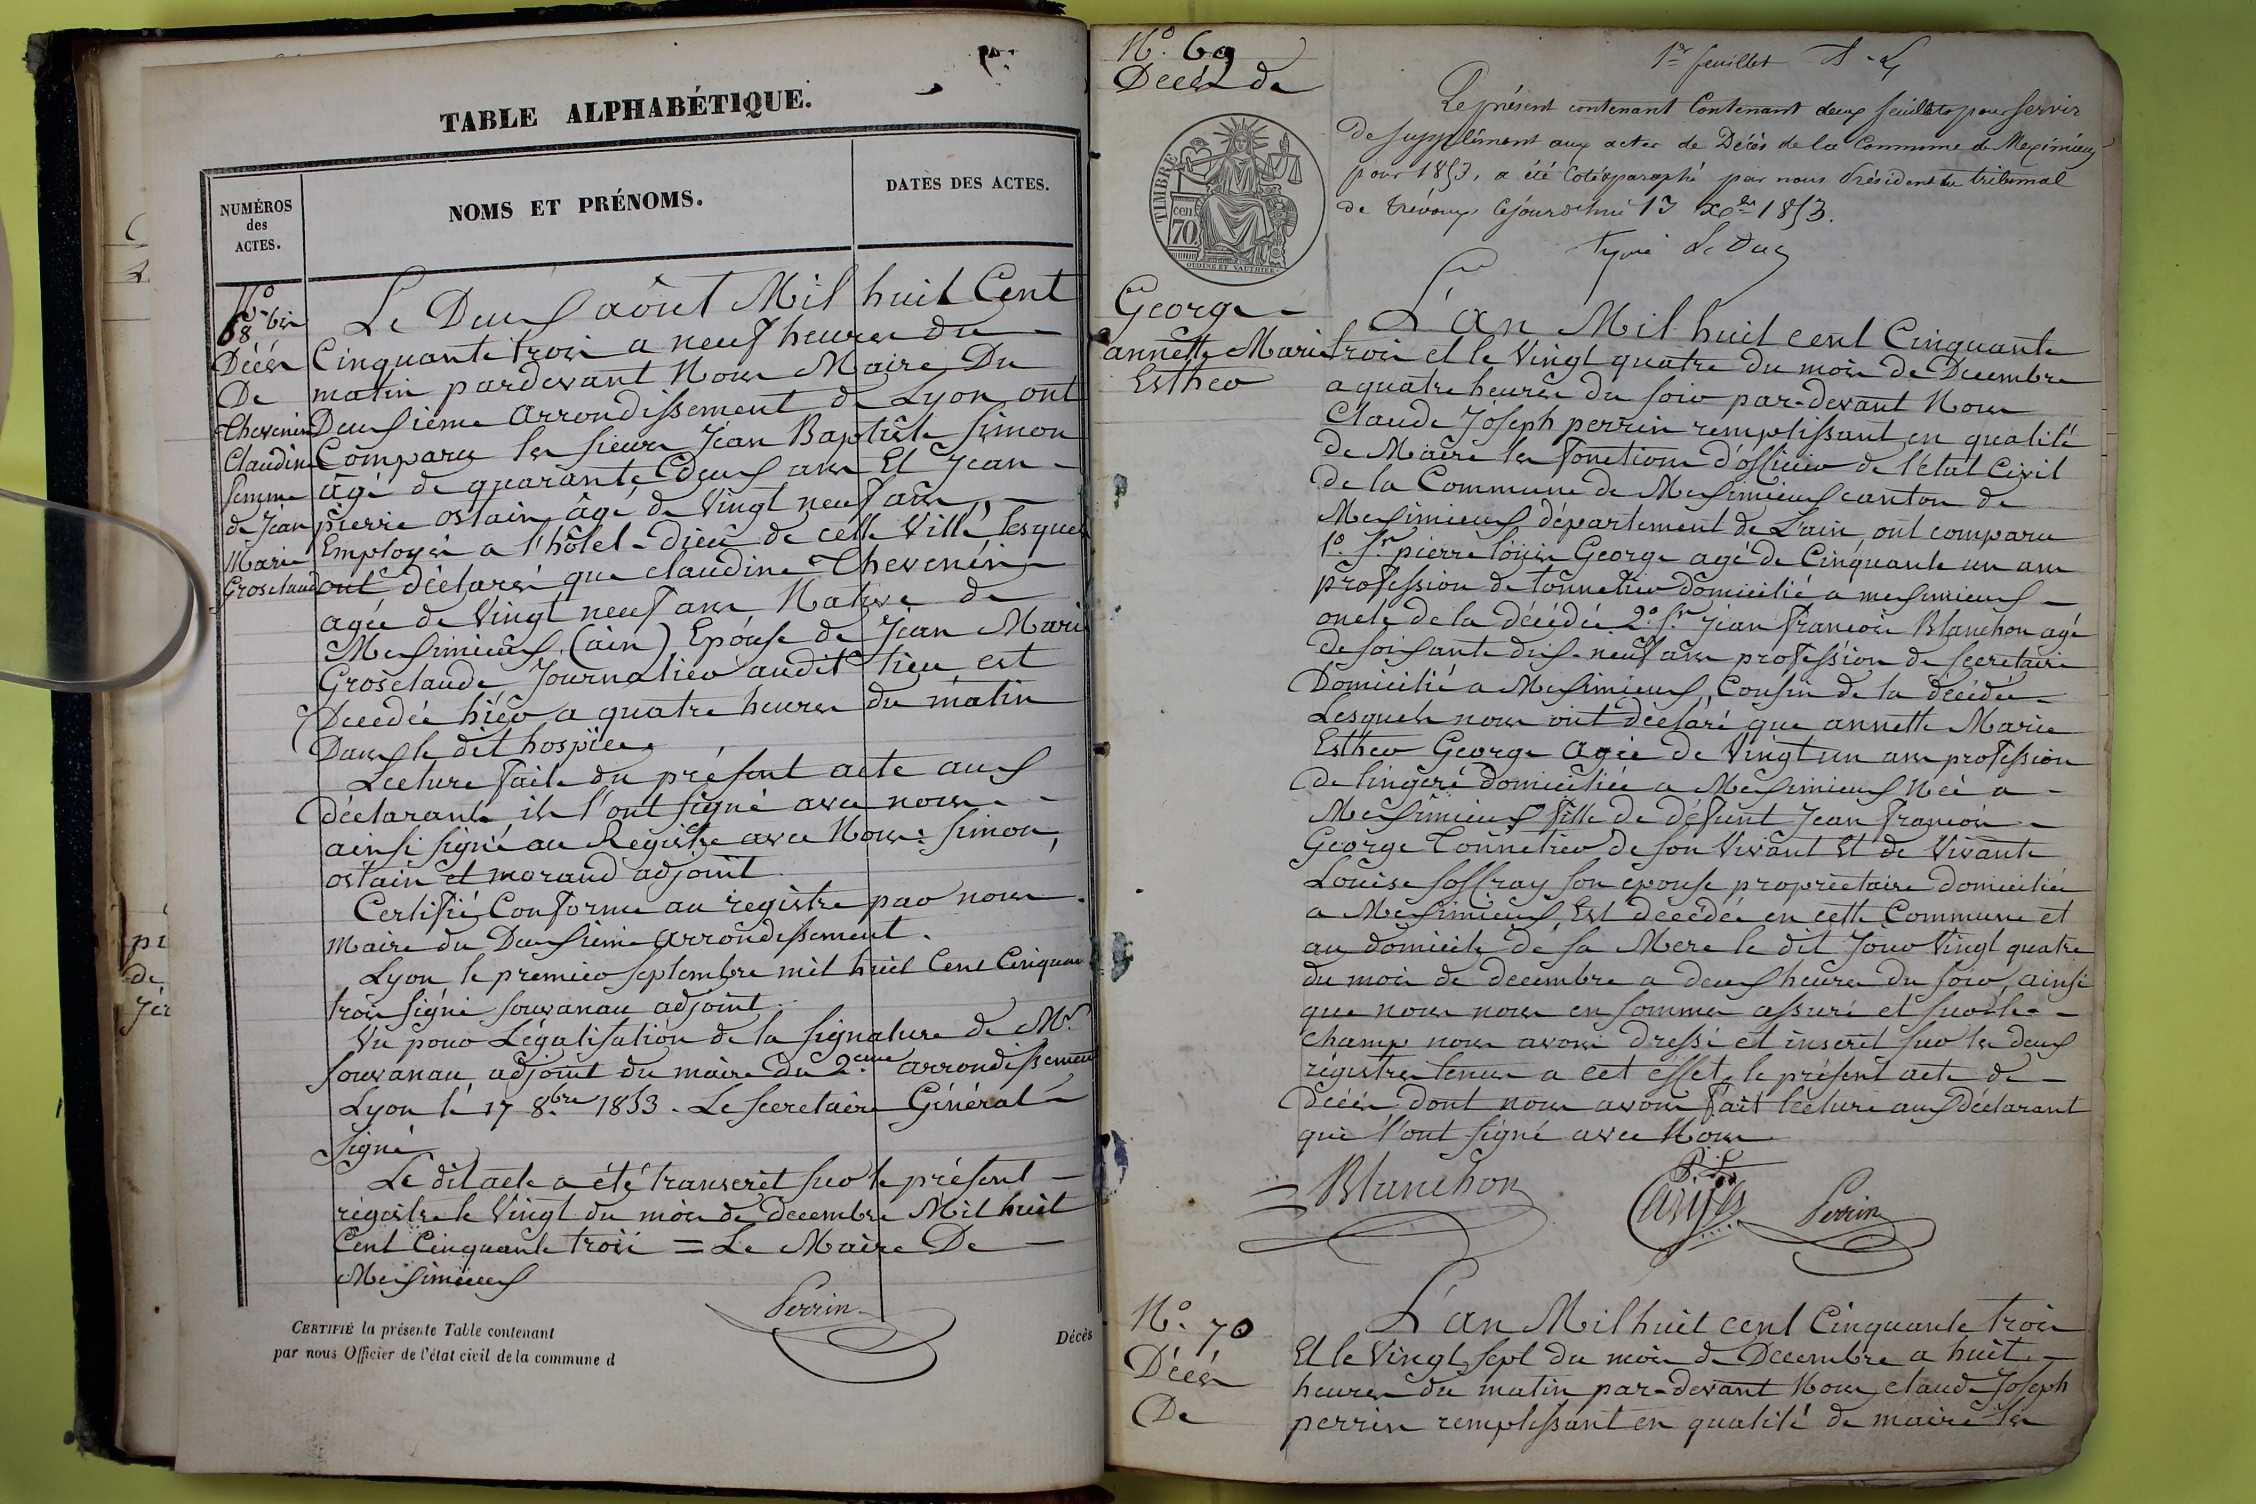 TABLE ALPHABÉTIQUE.
NUMÉROS
des
ACTES.
NOMS ET PRÉNOMS.
DATES DES ACTES.
N.º
68 bis
Décès
De
Thevenin
Claudine
femme
de Jean
Marie
Groselaude
Le Deux août Mil huit Cent
Cinquante trois a neuf heures du
matin pardevant Nous Maire Du
Deuxième arrondissement de Lyon ont
Comparu les sieurs Jean Baptiste Simon
âgé de quarante Deux ans Et Jean
pierre ostain âgé de Vingt neuf ans,
Employés a l'hôtel-Dieu de cette Ville, lesquels
ont déclaré que claudine Thevenin
agée de Vingt neuf ans Native de
Meximieux (ain) Epouse de Jean Marie
Groselaude Journalier audit lieu est
Decedée hier a quatre heures du matin
Dans le dit hospice
Lecture faite du présent acte aux
déclarants ils l'ont signé avec nous
ainsi signé au Registre avec Nous: Simon,
ostain et morand adjoint
Certifié Conforme au registre par nous
maire du Deuxième arrondissement.
Lyon le premier septembre mil huit Cent Cinquante
trois signé souvanau adjoint
Vu pour Légalisation de la signature de Mr.
souvanau adjoint du maire du 2.eme arrondissement
Lyon le 17 8.bre 1853. Le secretaire Général
signé
Le dit acte a été transcrit sur le présent
régistre le Vingt du mois de Decembre Mil huit
Cent Cinquante trois = Le Maire De
Meximieux
Perrin
CERTIFIÉ la présente Table contenant
Décès
par nous Officier de l'état civil de la commune d
N.º 69
Décès de
TIMBRE
cen
70
OUDINÉ ET VAUTHIER
George
annette Marie
Esther
1er feuillet
Le présent contenant Contenant deux feuillets pour servir
de supplément aux actes de Décès de la Commune de Meximieux
pour 1853, a été coté & paraphé par nous Président du tribunal
de Trévoux cejourd'hui 13 Xbre 1853.
Signé Le Duc
L'an Mil huit cent Cinquante
trois et le Vingt quatre du mois de Decembre
a quatre heures du soir par-devant Nous
Claude Joseph perrin remplissant en qualité
de Maire les fonctions d'officier de l'état Civil
de la Commune de Meximieux canton de
Meximieux, département de L'ain, ont comparu
1º Sr pierre loüis George agé de Cinquante un ans
profession de tonnelier domicilié a meximieux
oncle de la décédée 2º Sr Jean François Blanchon agé
de soixante dix-neuf ans profession de secretaire
Domicilié a Meximieux, Cousin de la décédée
Lesquels nous ont déclaré que annette Marie
Esther George Agée de Vingt un ans profession
de lingère domiciliée a Meximieux Née a
Meximieux fille de défunt Jean François
George Tonnelier de son Vivant Et de Vivante
Louise soffray son epouse propriétaire domiciliée
a Meximieux, Est decédée en cette Commune et
au domicile de sa Mere le dit Jour Vingt quatre
du mois de decembre a deux heures du soir, ainsi
que nous nous en sommes assuré et sur le
champ nous avons dressé et inscrit sur les deux
régistres tenus a cet effet le présent acte de
décès dont nous avons fait lecture aux déclarant
qui l'ont signé avec Nous
Blanchon
Perrin
N.º 70
Décès
De
L'an Mil huit cent Cinquante trois
Et le Vingt sept du mois de Decembre a huit
heures du matin par-devant Nous claude Joseph
perrin remplissant en qualité de maire les